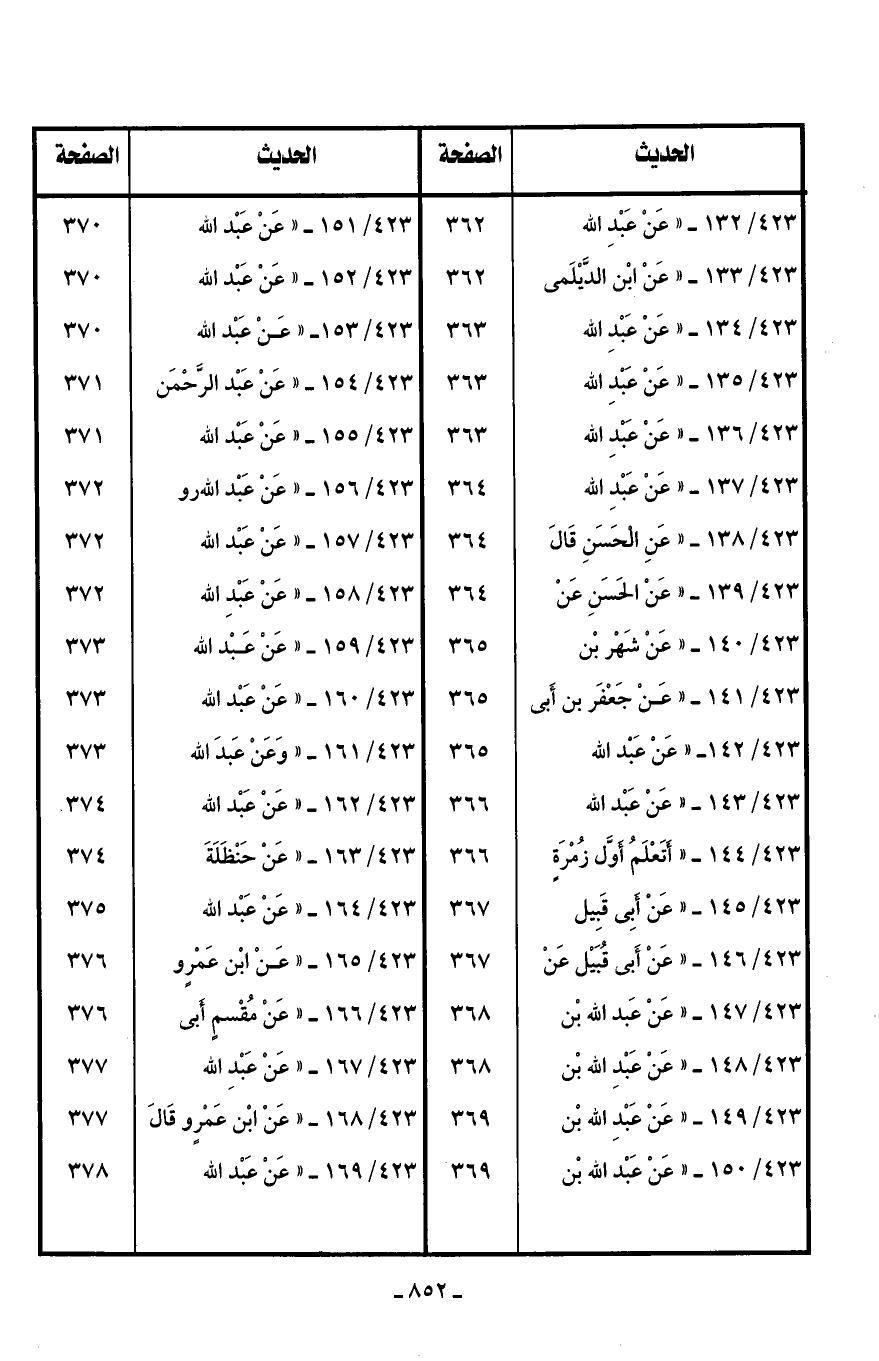 الحديث الصفحة الحديث الصفحة
٤٢٣/ ١٣٢ ـ « عَنْ عَبْدِ الله ٣٦٢ ٤٢٣/ ١٥١ ـ « عَنْ عَبْد الله ٣٧٠
٤٢٣/ ١٣٣ ـ « عَنْ ابْن الدَّيْلَمى ٣٦٢ ٤٢٣/ ١٥٢ ـ « عَنْ عَبْد الله ٣٧٠
٤٢٣/ ١٣٤ ـ « عَنْ عَبْدِ الله ٣٦٣ ٤٢٣/ ١٥٣ـ « عَـنْ عَبْدِ الله ٣٧٠
٤٢٣/ ١٣٥ ـ « عَنْ عَبْدِ الله ٣٦٣ ٤٢٣/ ١٥٤ ـ « عَنْ عَبْد الرَّحْمَن ٣٧١
٤٢٣/ ١٣٦ ـ « عَنْ عَبْدِ الله ٣٦٣ ٤٢٣/ ١٥٥ ـ « عَنْ عَبْد الله ٣٧١
٤٢٣/ ١٣٧ ـ « عَنْ عَبْدِ الله ٣٦٤ ٤٢٣/ ١٥٦ ـ « عَنْ عَبْد الله رو ٣٧٢
٤٢٣/ ١٣٨ ـ « عَنِ الْحَسَنِ قَالَ ٣٦٤ ٤٢٣/ ١٥٧ ـ « عَنْ عَبْد الله ٣٧٢
٤٢٣/ ١٣٩ ـ « عَنْ الحَسَنِ عَنْ ٣٦٤ ٤٢٣/ ١٥٨ ـ « عَنْ عَبْدِ الله ٣٧٢
٤٢٣/ ١٤٠ ـ « عَنْ شَهْر بْن ٣٦٥ ٤٢٣/ ١٥٩ ـ « عَنْ عَـبْد الله ٣٧٣
٤٢٣/ ١٤١ ـ « عَـنْ جَعْفَر بن أَبى ٣٦٥ ٤٢٣/ ١٦٠ ـ « عَنْ عَبْد الله ٣٧٣
٤٢٣/ ١٤٢ـ « عَنْ عَبْد الله ٣٦٥ ٤٢٣/ ١٦١ ـ « وَعَنْ عَبدَ الله ٣٧٣
٤٢٣/ ١٤٣ ـ « عَنْ عَبْد الله ٣٦٦ ٤٢٣/ ١٦٢ ـ « عَنْ عَبْد الله ٣٧٤
٤٢٣/ ١٤٤ ـ « أَتَعْلَمُ أَوَّل زُمْرَةٍ ٣٦٦ ٤٢٣/ ١٦٣ ـ « عَنْ حَنْظَلَةَ ٣٧٤
٤٢٣/ ١٤٥ ـ « عَنْ أَبِى قَبِيل ٣٦٧ ٤٢٣/ ١٦٤ ـ « عَنْ عَبْد الله ٣٧٥
٤٢٣/ ١٤٦ ـ « عَنْ أَبى قُبَيْل عَنْ ٣٦٧ ٤٢٣/ ١٦٥ ـ « عَـنْ ابْن عَمْرٍو ٣٧٦
٤٢٣/ ١٤٧ ـ « عَنْ عَبد الله بْن ٣٦٨ ٤٢٣/ ١٦٦ ـ « عَنْ مُقْسمٍ أَبى ٣٧٦
٤٢٣/ ١٤٨ ـ « عَنْ عَبْدِ الله بْن ٣٦٨ ٤٢٣/ ١٦٧ ـ « عَنْ عَبْدِ الله ٣٧٧
٤٢٣/ ١٤٩ ـ « عَنْ عَبْدِ الله بْن ٣٦٩ ٤٢٣/ ١٦٨ ـ « عَنْ ابْن عَمْرٍو قَالَ ٣٧٧
٤٢٣/ ١٥٠ ـ « عَنْ عَبْد الله بْن ٣٦٩ ٤٢٣/ ١٦٩ ـ « عَنْ عَبْد الله ٣٧٨
ـ ٨٥٢ ـ